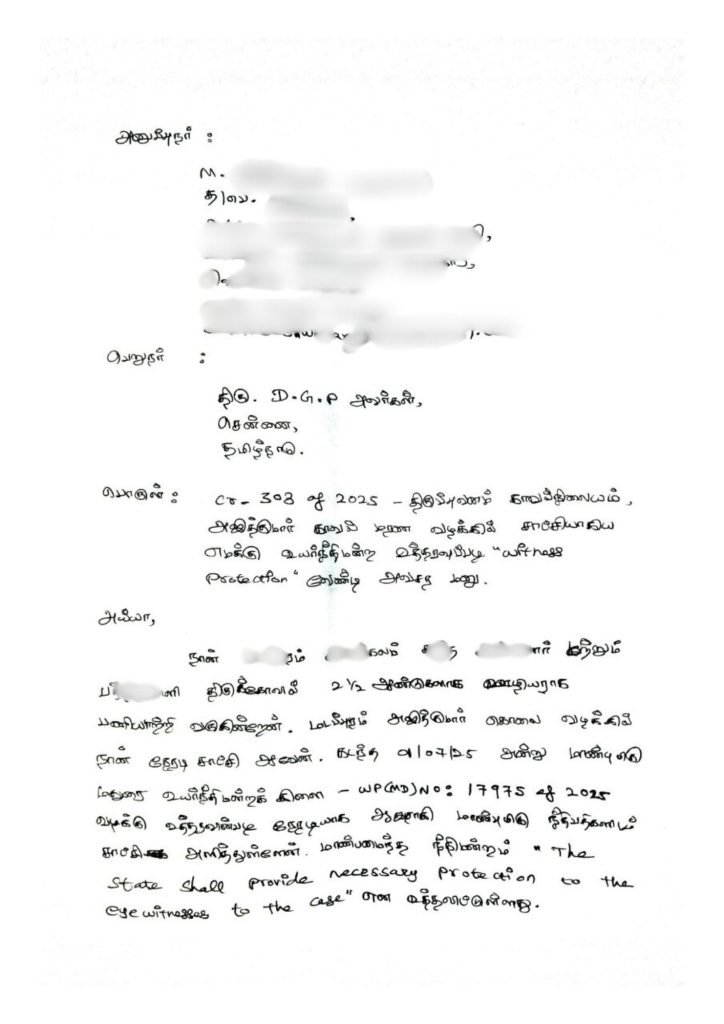 அனுப்புநர் :
M.
த/பெ.
பெறுநர் :
திரு. D.G.P அவர்கள்,
சென்னை,
தமிழ்நாடு.
பொருள் : Cr- 303 of 2025 - திருப்புவனம் காவல்நிலையம்,
அஜித்குமார் காவல் மரண வழக்கில் சாட்சியாகிய
எமக்கு உயர்நீதிமன்ற உத்தரவுப்படி "witness
Protection" வேண்டி அவசர மனு.
அய்யா,
நான் மற்றும்
திருக்கோவில் 2 1/2 ஆண்டுகளாக ஊழியராக
பணியாற்றி வருகின்றேன். மடப்புரம் அஜித்குமார் கொலை வழக்கில்
நான் நேரடி சாட்சி ஆவேன். கடந்த 01/07/25 அன்று மாண்புமிகு
மதுரை உயர்நீதிமன்றக் கிளை - WP(MD)NO: 17975 of 2025
வழக்கு உத்தரவின்படி நேரடியாக ஆஜராகி மாண்புமிகு நீதிபதிகளிடம்
சாட்சி அளித்துள்ளேன். மாண்பமைந்த நீதிமன்றம் "The
State shall provide necessary Protection to the
eyewitnesses to the case" என உத்தரவிட்டுள்ளது.